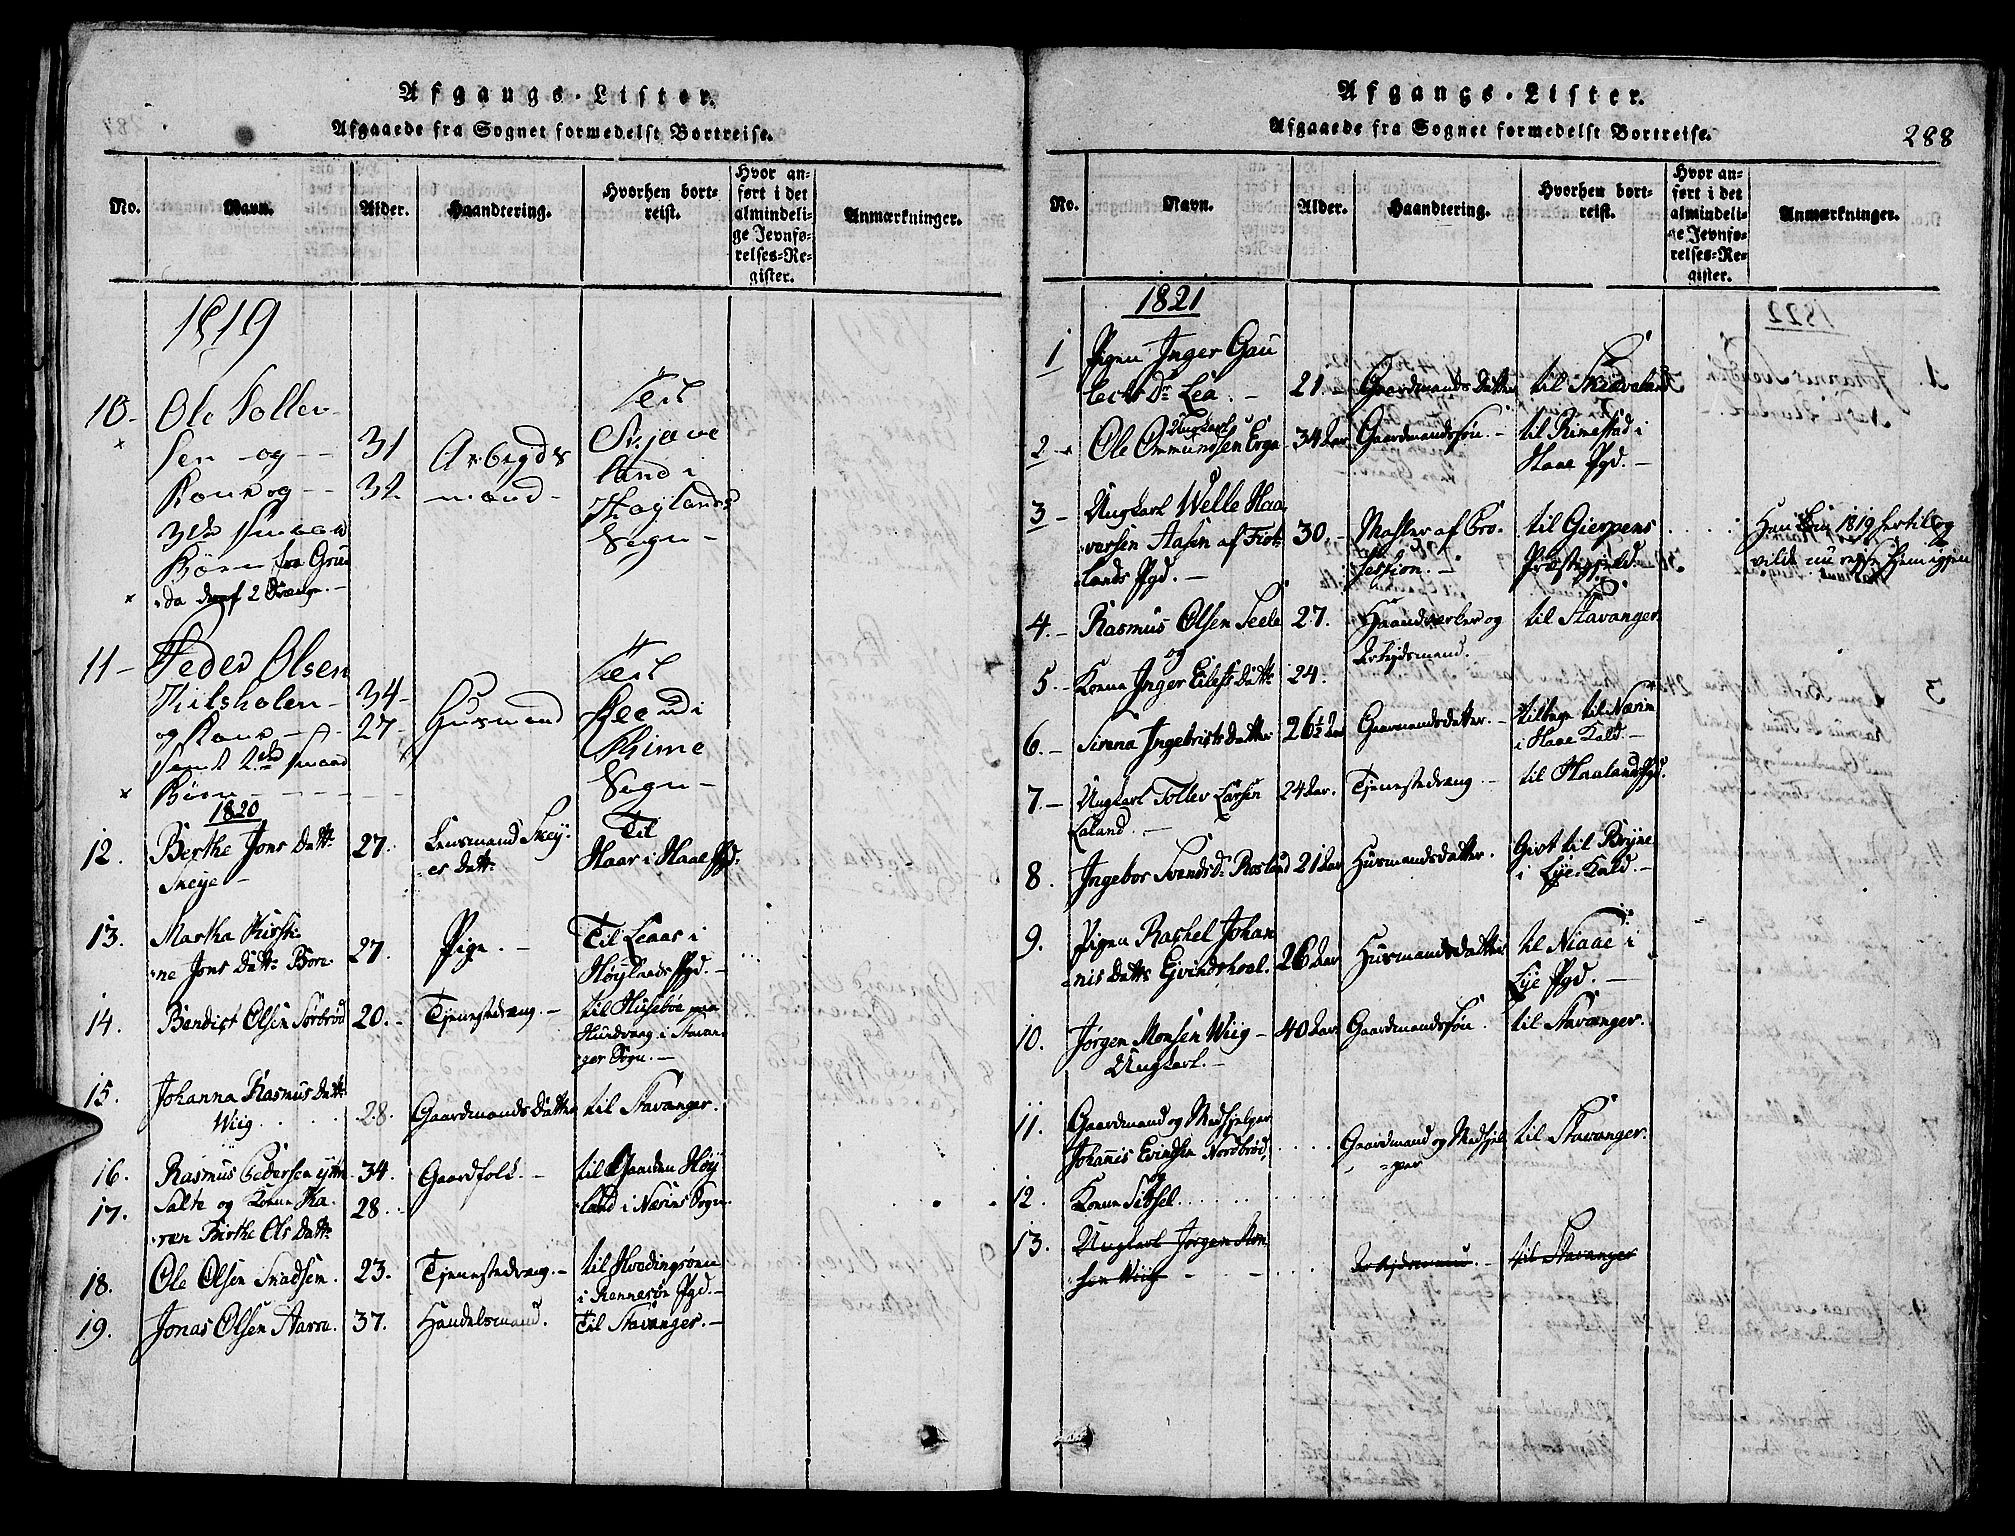 Afgangs-Lister.
Afgaaede fra Sognet formedelst Bortreise.
No.
Navn.
Alder.
Haandtering.
Hvorhen bort-
reist.
Hvor an-
ført i det
almindeli-
ge Jevnfø-
relses-Re-
gister.
Anmærkninger.
1819
10 - Ole Tollev-
sen og 31
Kone og 32
3de smaae
Børn fra Gru
da
Arbeyds
mand
Teil
Skjave
land i
Høylands
Sogn
11 - Peder Olsen
34
og Kone 27
samt 2de smaae
Børn
Husmand
Teil
i
Thime
Sogn
1820
12. Berthe Jons Datt:
Skeye
27.
Lensmand Skey-
es Datt:
Til
Haar i Haae Pgd.
13. Martha Kirsti-
ne Jons Datt: Bore
27.
Pige.
Til Lenaas i
Høylands Pgd.
14. Bendict Olsen Sørbrød
20.
Tjenestedreng.
til Husebøe paa
Hundvaag i Stavan
ger Sogn.
15. Johanna Rasmus Datt:
Wiig
28.
Gaardmands Datter
til Stavanger.
16. Rasmus Pedersen ytre
34.
Gaardfolk.
til Gaarden Høy
17. Salte og Konen Ka-
ren Birthe Ols Datt:
28.
land i Nærins Sogn.
18. Ole Olsen Snadsen.
23.
Tjenestedreng.
til Hvidingsøen
i Rennesøe Pgd.
19. Jonas Olsen Aarre.
37.
Handelsmand.
Til Stavanger.
Afgangs-Lister.
Afgaaede fra Sognet formedelst Bortreise.
288
No.
Navn.
Alder.
Haandtering.
Hvorhen bort-
reist.
Hvor an-
ført i det
almindeli-
ge Jevnfø-
relses-Re-
gister.
Anmærkninger.
1821
1 Pigen Inger Gau
tets Dr Lea.
21.
Gaardmands Datter
til Skiæveland
2 Ungkarl
Ole Ommundsen Erga
34 Aar
Gaardmandssøn.
til Rimestad i
Haae Pgd.
3 Ungkarl Welle Haa
versen Aasen af Fiot
lands Pgd.
30.
Mahler af Pro-
fession.
til Gierpens
Præstegjeld.
Han kom 1819 hertil og
vilde nu reise hiem igjen
4. Rasmus Olsen Seele
og
27.
Haandverker og
Arbeydsmand.
til Stavanger.
5 Konen Inger Eilefs Datt:
24.
6. Sirena Ingebrigts Datter
26½ Aar
Gaarmandsdatter.
tilbage til Nærim
i Haae Kald.
7. Ungkarl Tollev Larsen
Laland.
24 Aar.
Tjenestedreng
til Haalands Pgd.
8. Ingebor Svends Dr Rosland
21 Aar
Husmandsdatter.
Givt til Bryne
i Lye Kald.
9. Pigen Rachel Johan
nis Datts Eivindsholt.
26 Aar
Husmandsdatter
til Niaae i
Lye Pgd.
10. Jørgen Monsen Wiig
Ungkarl.
40 Aar
Gaardmandssøn.
til Stavanger.
11. Gaardmand og Medhjelper
Johannis Evindsen Nordbrød,
og
Gaardmand og Medhjel-
per
til Stavanger.
12. Konen Sitsel.
13. Ungkarl Jørgen Mon
sen Wiig
Arbeydsmand.
til Stavanger